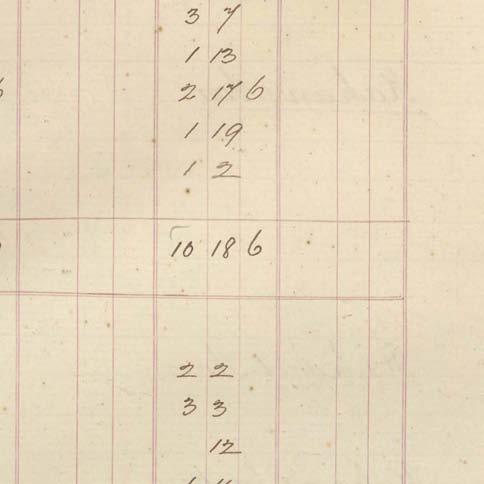 3 7
1 13
2 17 6
1 19
1 2
10 18 6
2 2
3 3
12